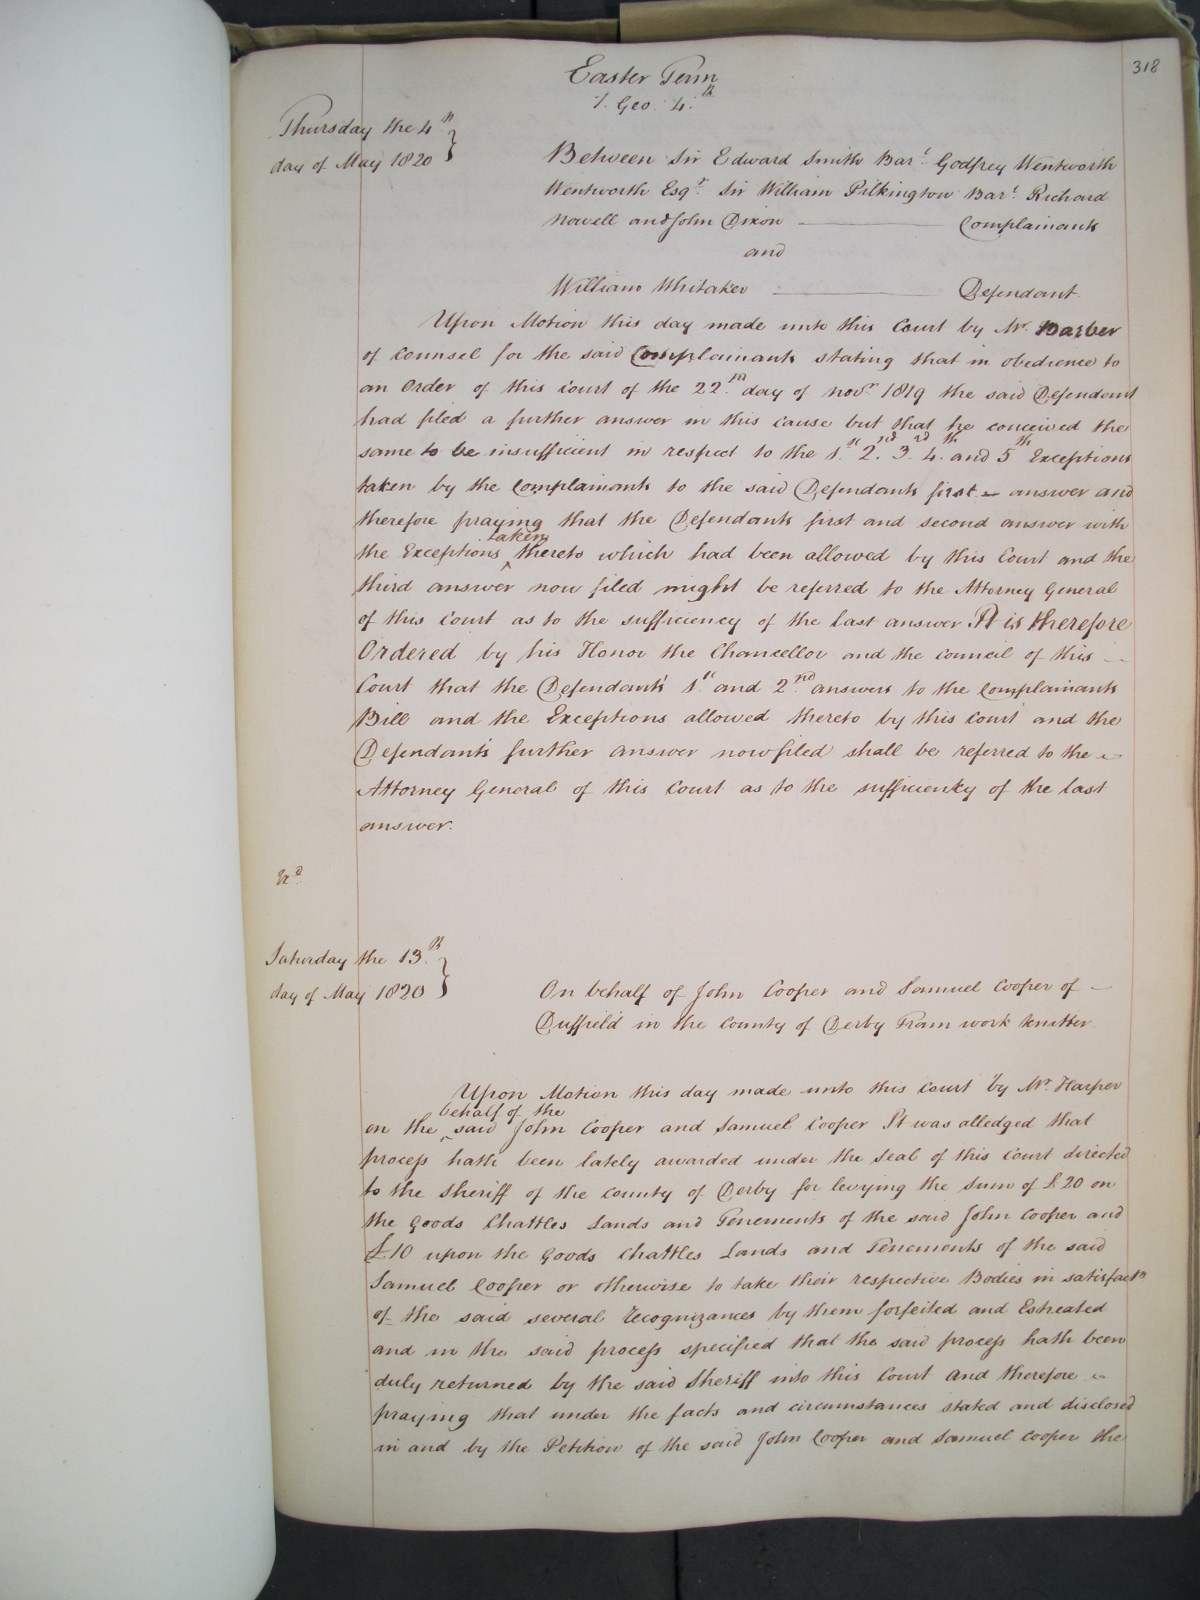 318
Easter Term
1. Geo. 4.th
Thursday the 4th
day of May 1820
Between Sir Edward Smith Bart. Godfrey Wentworth
Wentworth Esqr. Sir William Pilkington Bart. Richard
Nowell and John Dixon Complainants
and
William Whitaker Defendant
Upon Motion this day made unto this Court by Mr. Barber
of Counsel for the said Complainants stating that in obedience to
an Order of this Court of the 22nd. day of Novr. 1819 the said Defendant
had filed a further answer in this cause but that he conceived the
same to be insufficient in respect to the 1st. 2nd. 3rd. 4th. and 5th Exceptions
taken by the Complainants to the said Defendants first answer and
therefore praying that the Defendants first and second answer with
the Exceptions taken thereto which had been allowed by this Court and the
third answer now filed might be referred to the Attorney General
of this Court as to the sufficiency of the last answer. It is therefore
Ordered by his Honor the Chancellor and the Council of this
Court that the Defendant's 1st. and 2nd. answers to the Complainants
Bill and the Exceptions allowed thereto by this Court and the
Defendant's further answer now filed shall be referred to the
Attorney General of this Court as to the sufficiency of the last
answer.
Saturday the 13th
day of May 1820
On behalf of John Cooper and Samuel Cooper of
Duffield in the County of Derby Fram work knitter
Upon Motion this day made unto this Court by Mr. Harper
on the behalf of the said John Cooper and Samuel Cooper It was alledged that
process hath been lately awarded under the Seal of this Court directed
to the Sheriff of the County of Derby for levying the Sum of £20 on
the Goods Chattles Lands and Tenements of the said John Cooper and
£10 upon the Goods Chattles Lands and Tenements of the said
Samuel Cooper or otherwise to take their respective Bodies in satisfactn
of the said several recognizances by them forfeited and Estreated
and in the said process specified that the said process hath been
duly returned by the said Sheriff into this Court and therefore
praying that under the facts and circumstances stated and disclosed
in and by the Petition of the said John Cooper and Samuel Cooper the